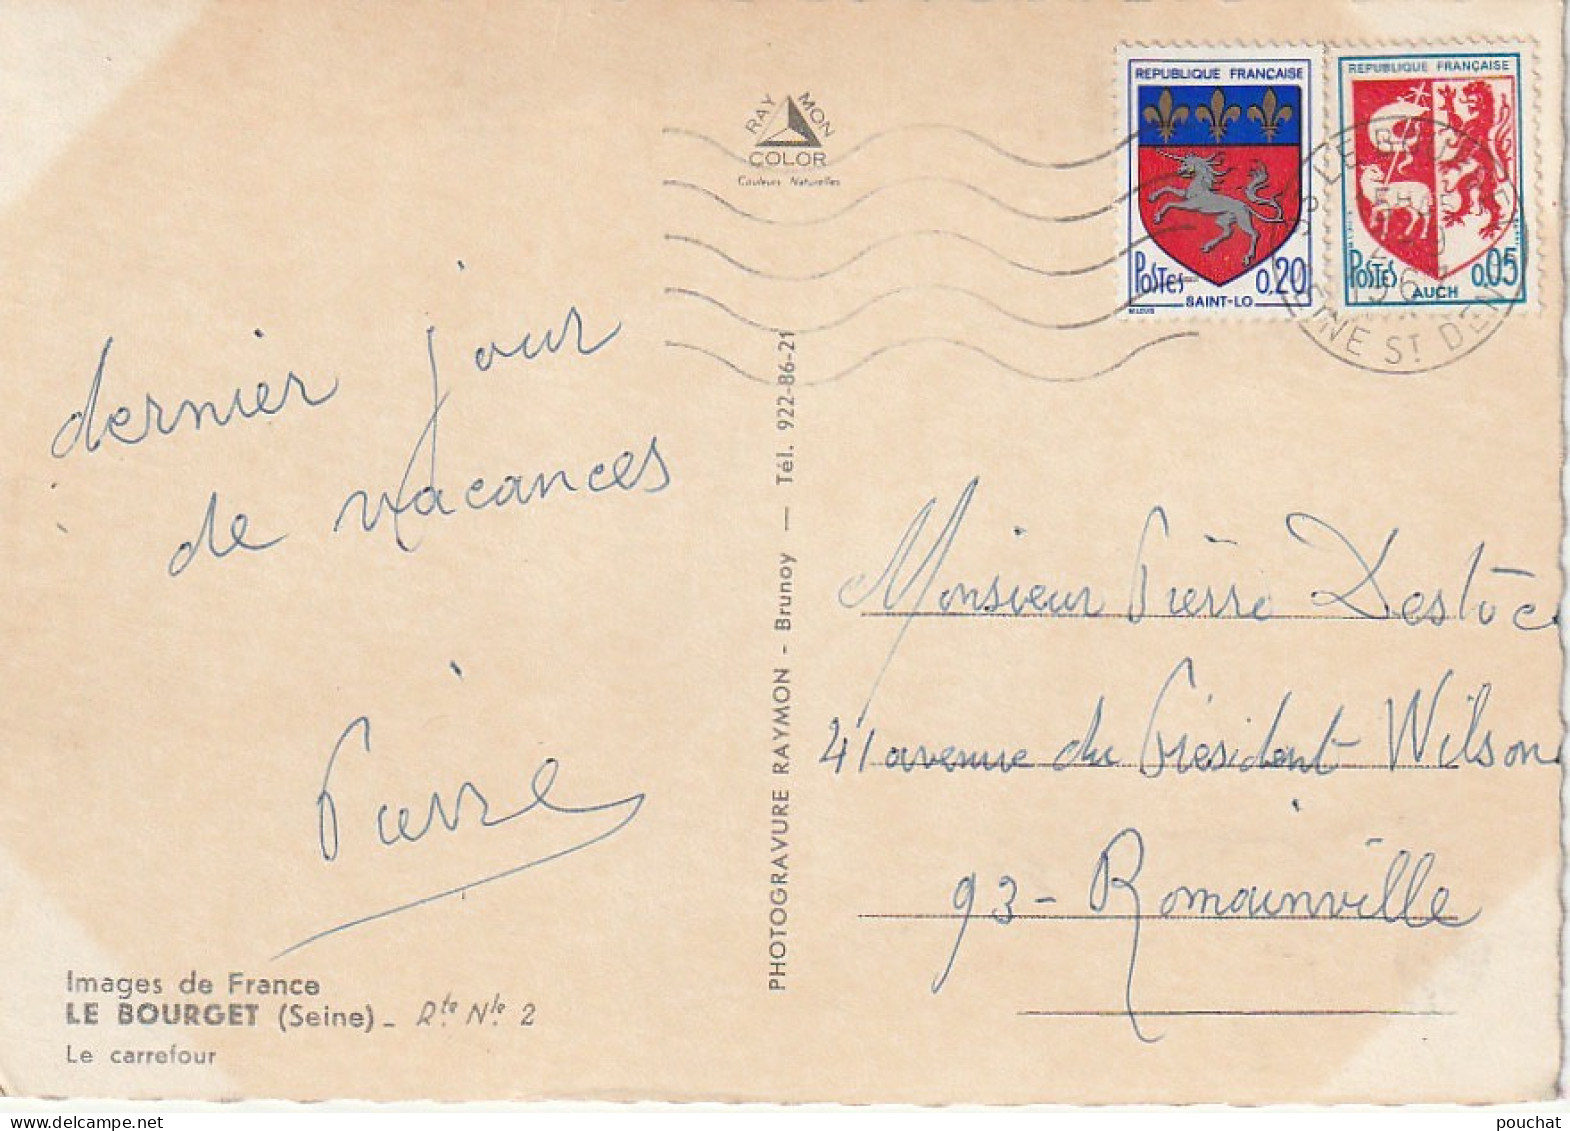 RAYMON
COLOR
Couleurs Naturelles
REPUBLIQUE FRANÇAISE
POSTES 0,20
SAINT-LO
REPUBLIQUE FRANÇAISE
POSTES 0,05
AUCH
SEINE ST DENIS
dernier jour
de vacances
Pierre
Images de France
LE BOURGET (Seine) - Rte Nle 2
Le carrefour
PHOTOGRAVURE RAYMON - Brunoy — Tél. 922-86-21
Monsieur Pierre
41 avenue du Président Wilson
93 - Romainville
pouchat